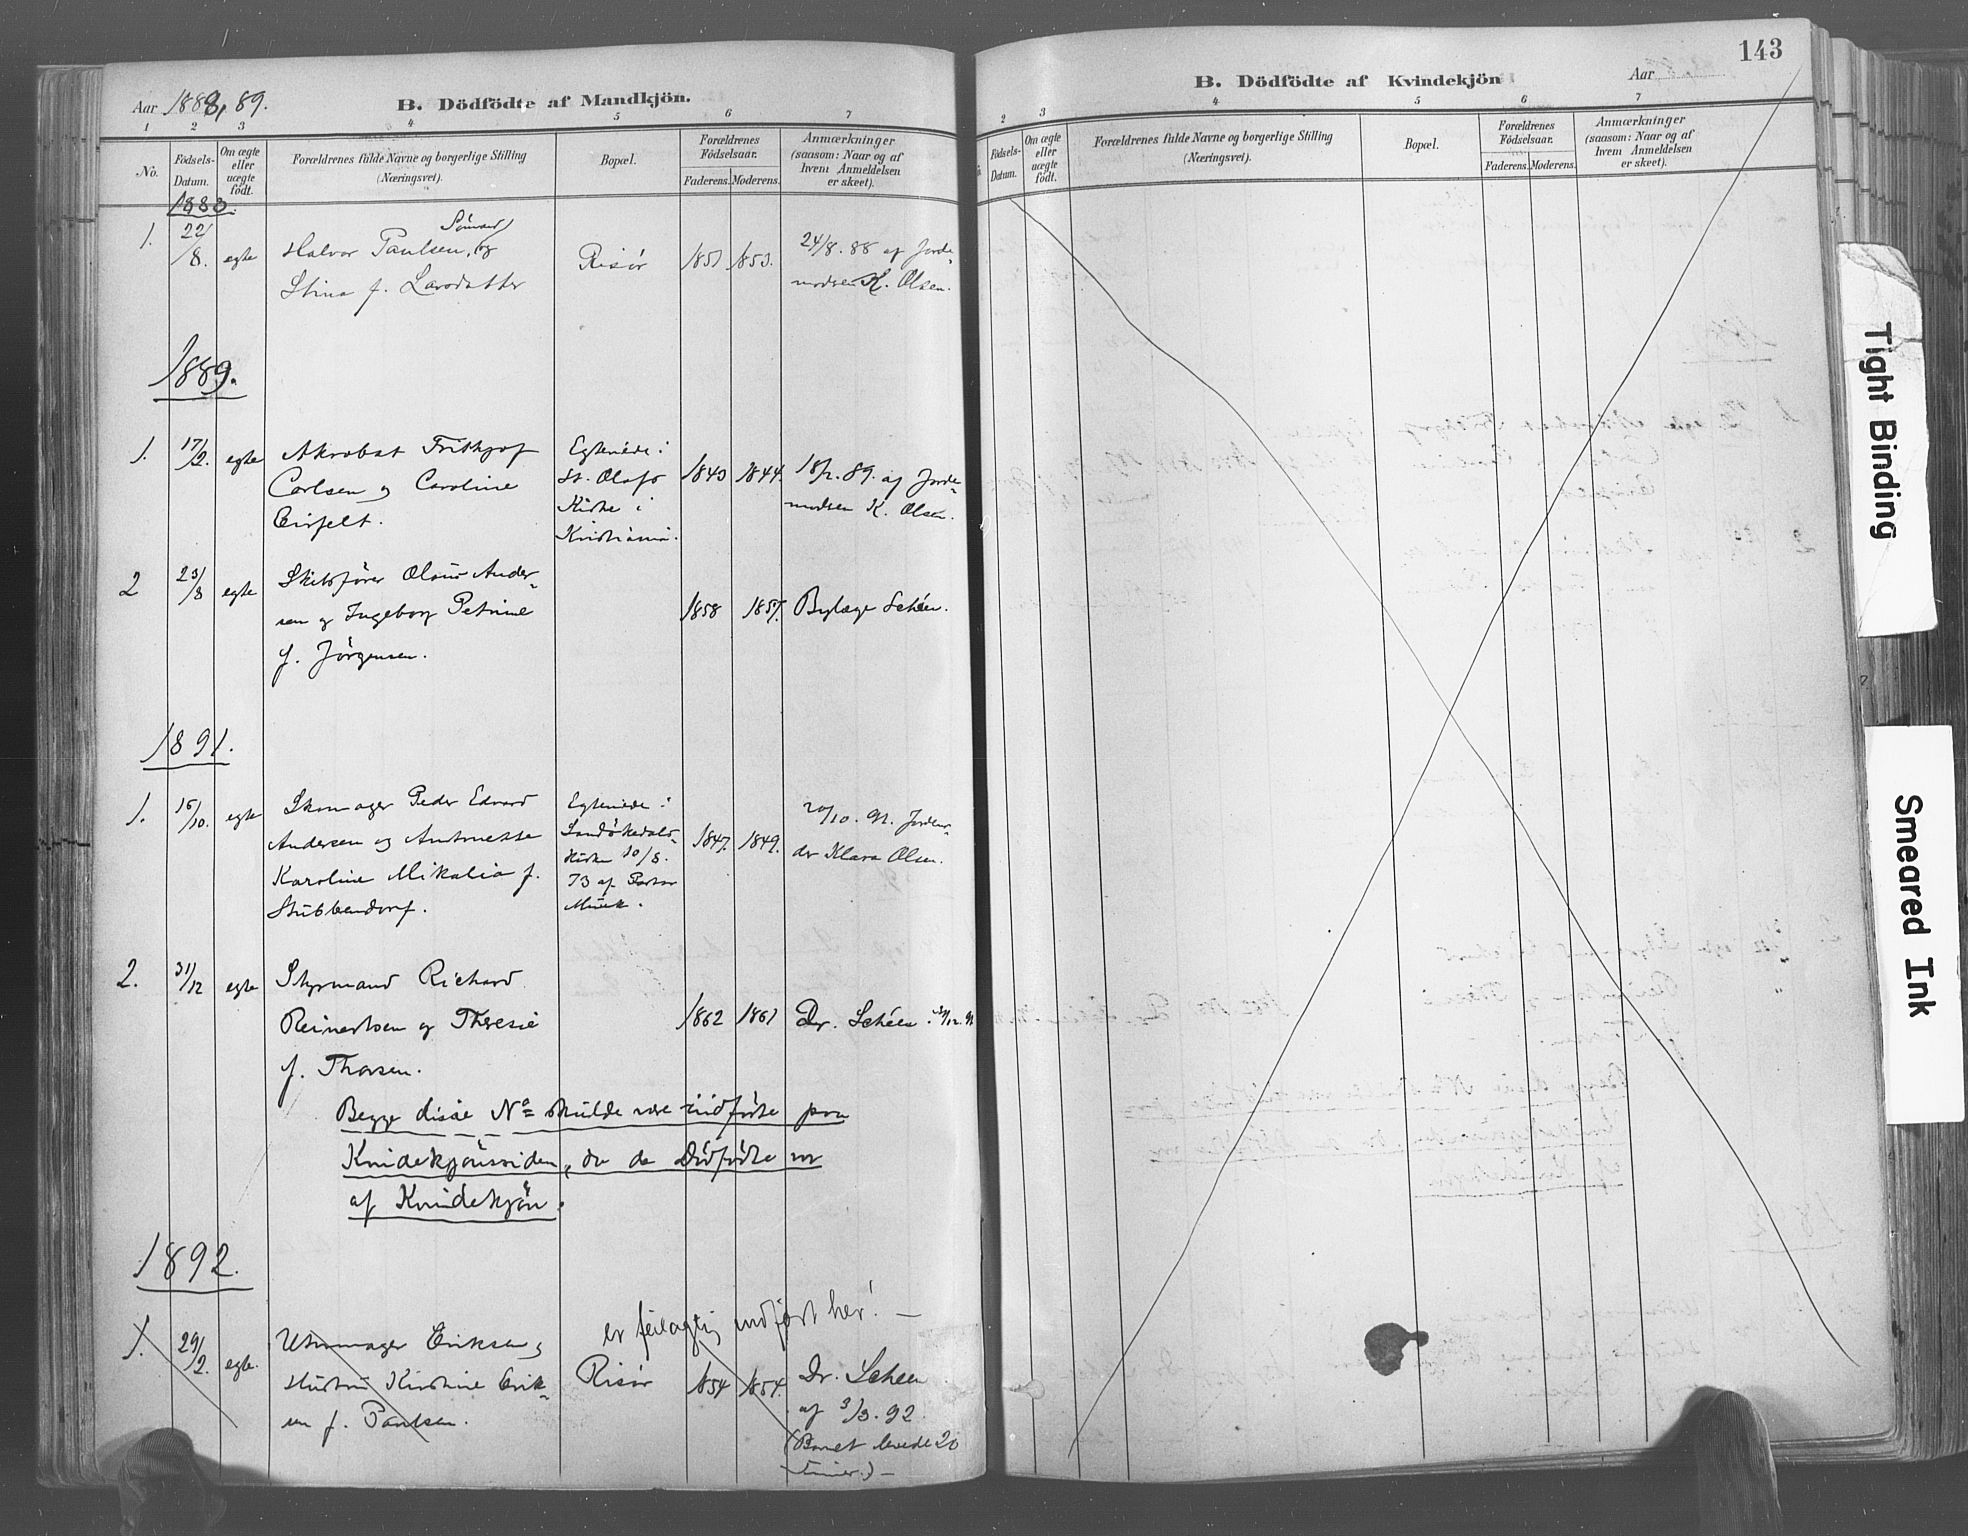 Aar 1888, 89.
B. Dödfödte af Mandkjön.
1 2 3 4 5 6 7
No.
Födsels-Datum.
Om ægte eller uægte födt.
Forældrenes fulde Navne og borgerlige Stilling
(Næringsvei).
Bopæl.
Forældrenes Födselsaar.
Faderens. Moderens.
Anmærkninger
(saasom: Naar og af
hvem Anmeldelsen
er skeet).
1888.
1. 22/8. egte
Sömand
Halvor Paulsen, og
Stine f. Larsdatter
Risör
1851 1853.
24/8. 88 af Jorde-
modsen K. Olsen.
1889.
1. 17/2. egte
Akrobat Frithjof
Carlsen og Caroline
Eirfelt.
Egteviede i
St. Olafs
Kirke i
Kristiania.
1843 1844.
18/2. 89. af Jorde-
modsen K. Olsen.
2 23/8 egte
Skibsförer Olaus Ander-
sen og Ingeborg Petrine
f. Jörgensen.
1858 1857.
Bylæge Schéen.
1891.
1. 15/10. egte
Skomager Peder Edvard
Andersen og Antonette
Karoline Mikalia f.
Stubbendorf.
Egteviede i
Sandökedals
Kirke 10/8.
73 af Pastor
Munk.
1847. 1849.
20/10. 91. Jordmo-
der Klara Olsen.
2. 31/12 egte
Styrmand Richard
Reinertsen og Theresie
f. Thorsen.
1862 1861
Dr. Schéen. 31/12. 91
Begge disse No skulde være indförte paa
Kvindekjönssiden, da de Dödfödte var
af Kvindekjön.
1892.
er feilagtig indfört her! —
1. 29/2. egte.
Uhrmager Eriksen og
Hustru Kirstine Erik-
sen f. Paulsen.
Risör
1854 1854.
Dr. Schéen
af 3/3. 92.
(Barnet levede 20
timer.) —
143
B. Dödfödte af Kvindekjön
Aar
2 3 4 5 6 7
Födsels-Datum.
Om ægte eller uægte födt.
Forældrenes fulde Navne og borgerlige Stilling
(Næringsvei).
Bopæl.
Forældrenes Födselsaar.
Faderens. Moderens.
Anmærkninger
(saasom: Naar og af
hvem Anmeldelsen
er skeet).
Tight Binding
Smeared Ink